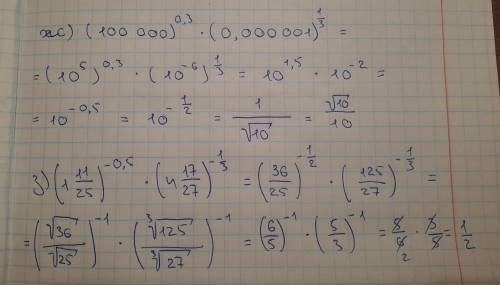 ж) (100 000)^0,3 · (0,000 001)^(1/3) =
= (10^5)^0,3 · (10^-6)^(1/3) = 10^1,5 · 10^-2 =
= 10^-0,5 = 10^(-1/2) = 1/√10 = √10/10
з) (1 11/25)^-0,5 · (4 17/27)^(-1/3) = (36/25)^(-1/2) · (125/27)^(-1/3) =
= (√36/√25)^-1 · (∛125/∛27)^-1 = (6/5)^-1 · (5/3)^-1 = 5/6 · 3/5 = 1/2
2